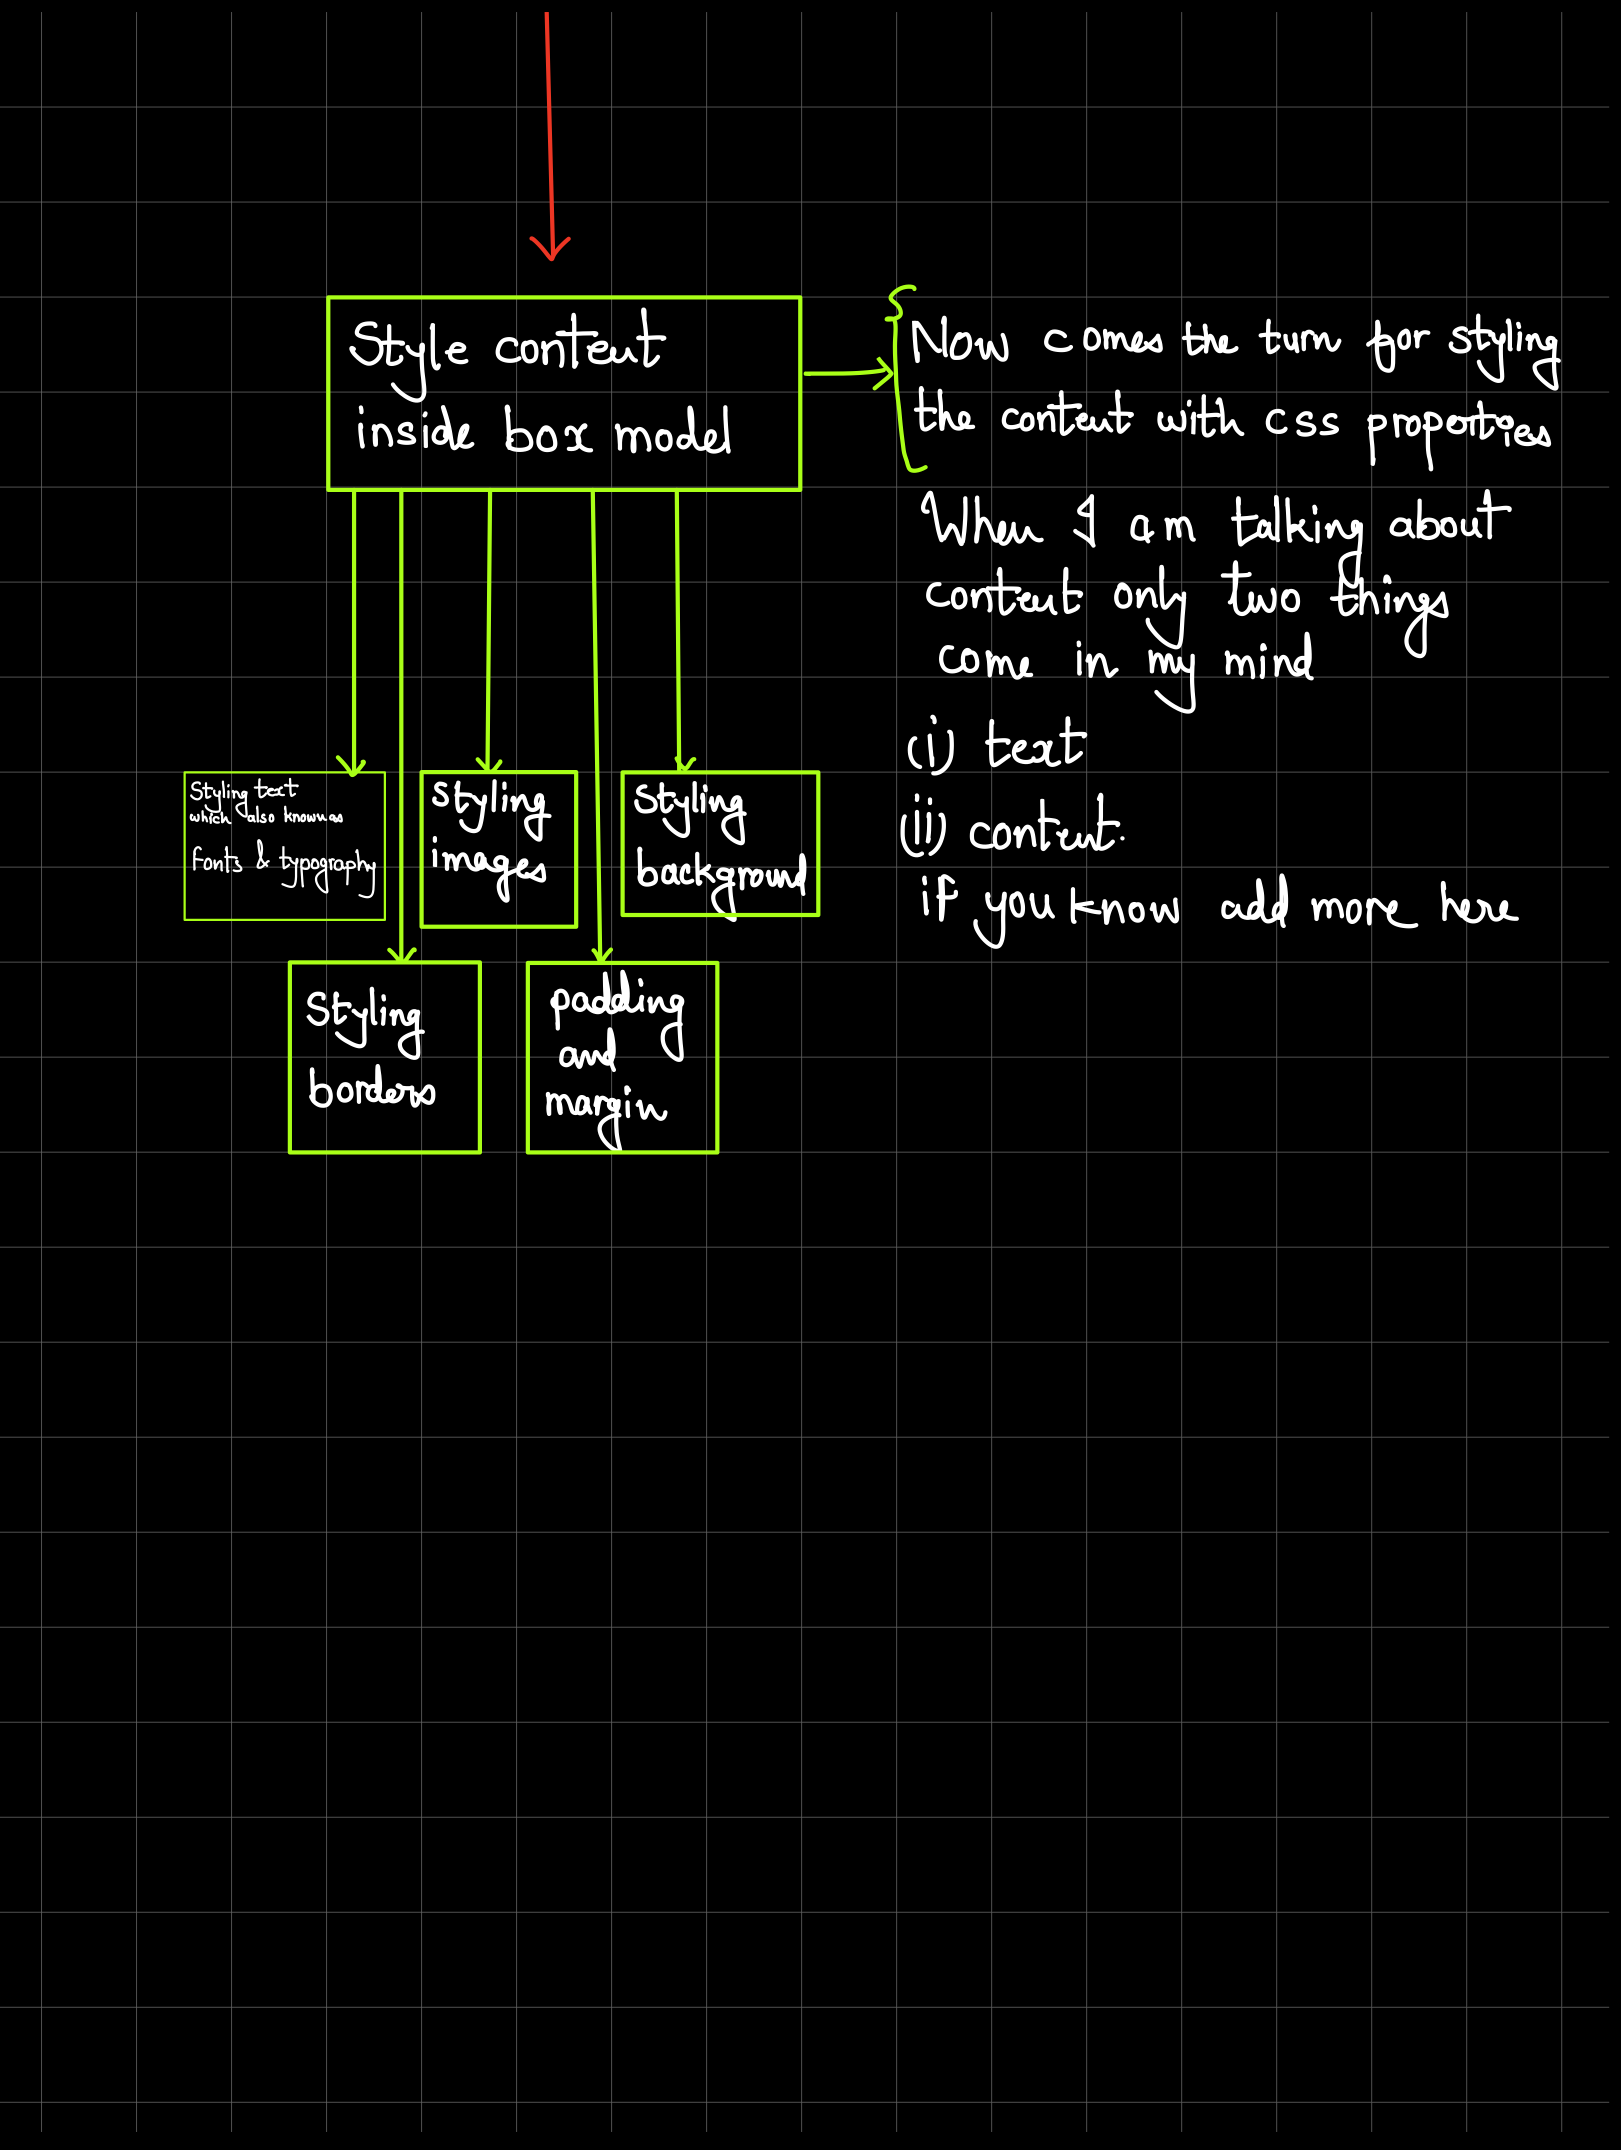 Style content
inside box model
Now comes the turn for styling
the content with css properties
When I am talking about
content only two things
come in my mind
(i) text
(ii) content.
if you know add more here
Styling text
which also known as
Fonts & typography
Styling
images
Styling
background
Styling
borders
padding
and
margin